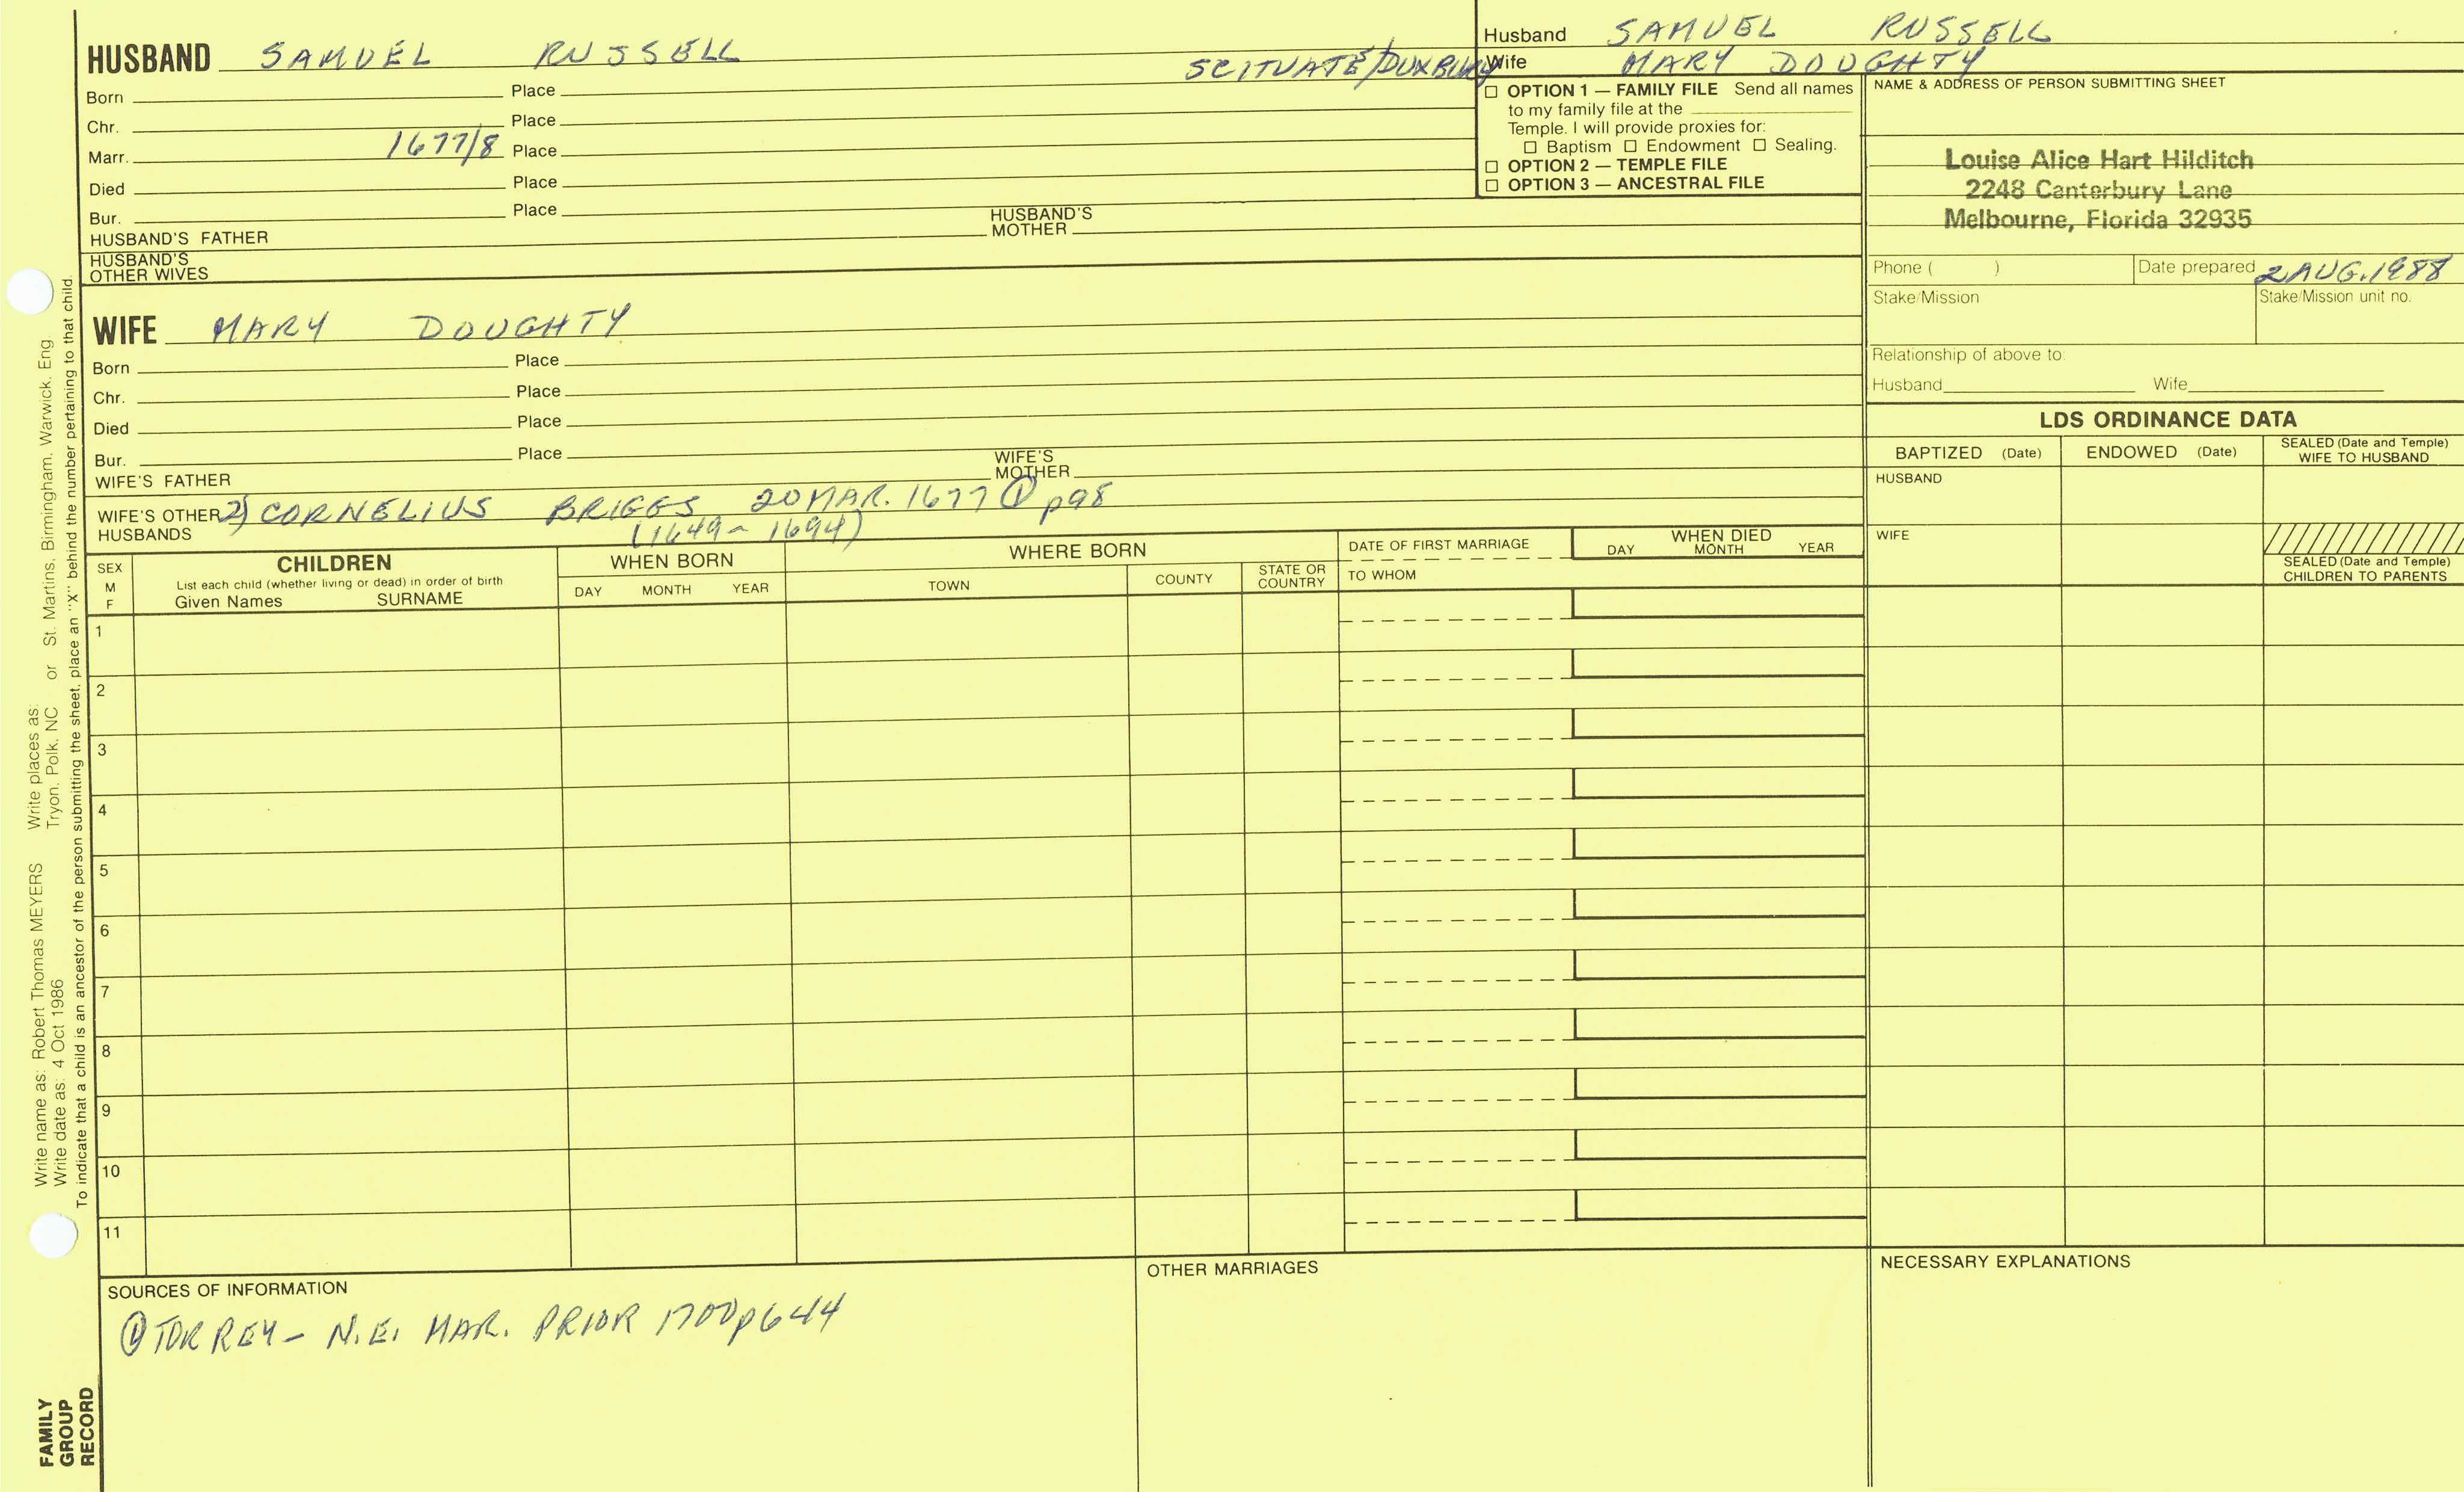 HUSBAND SAMUEL RUSSELL SCITUATE/DUXBURY
Born Place
Chr. Place
Marr. 1677/8 Place
Died Place
Bur. Place
HUSBAND'S FATHER HUSBAND'S MOTHER
HUSBAND'S OTHER WIVES
Husband SAMUEL RUSSELL
Wife MARY DOUGHTY
☐ OPTION 1 — FAMILY FILE Send all names
to my family file at the
Temple. I will provide proxies for:
☐ Baptism ☐ Endowment ☐ Sealing.
☐ OPTION 2 — TEMPLE FILE
☐ OPTION 3 — ANCESTRAL FILE
NAME & ADDRESS OF PERSON SUBMITTING SHEET
Louise Alice Hart Hilditch
2248 Canterbury Lane
Melbourne, Florida 32935
Phone ( ) Date prepared 2 AUG. 1988
Stake/Mission Stake/Mission unit no.
Relationship of above to:
Husband Wife
WIFE MARY DOUGHTY
Born Place
Chr. Place
Died Place
Bur. Place
WIFE'S FATHER WIFE'S MOTHER
WIFE'S OTHER HUSBANDS 2) CORNELIUS BRIGGS 20 MAR. 1677 ① p98
(1649 - 1694)
LDS ORDINANCE DATA
BAPTIZED (Date) ENDOWED (Date) SEALED (Date and Temple) WIFE TO HUSBAND
HUSBAND
WIFE
SEALED (Date and Temple) CHILDREN TO PARENTS
SEX M F
CHILDREN
List each child (whether living or dead) in order of birth
Given Names SURNAME
WHEN BORN
DAY MONTH YEAR
WHERE BORN
TOWN COUNTY STATE OR COUNTRY
DATE OF FIRST MARRIAGE
TO WHOM
WHEN DIED
DAY MONTH YEAR
1
2
3
4
5
6
7
8
9
10
11
SOURCES OF INFORMATION
① TORREY - N.E. MAR. PRIOR 1700 p644
OTHER MARRIAGES
NECESSARY EXPLANATIONS
Write name as: Robert Thomas MEYERS Write places as: St. Martins, Birmingham, Warwick, Eng
Write date as: 4 Oct 1986 Tryon, Polk, NC or
To indicate that a child is an ancestor of the person submitting the sheet, place an "X" behind the number pertaining to that child.
FAMILY
GROUP
RECORD